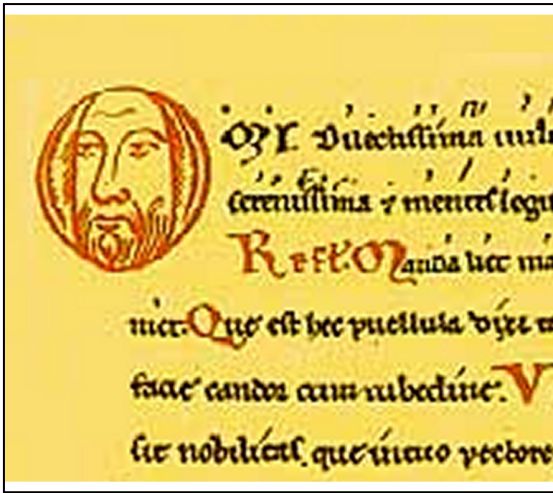 O MI. Dilectissima
serenissima ⁊
Refl. Manda liet ma
niet. Que est hec puellula dixi
facie candor cum rubedine. V
sit nobilitas, que in tuo pectore